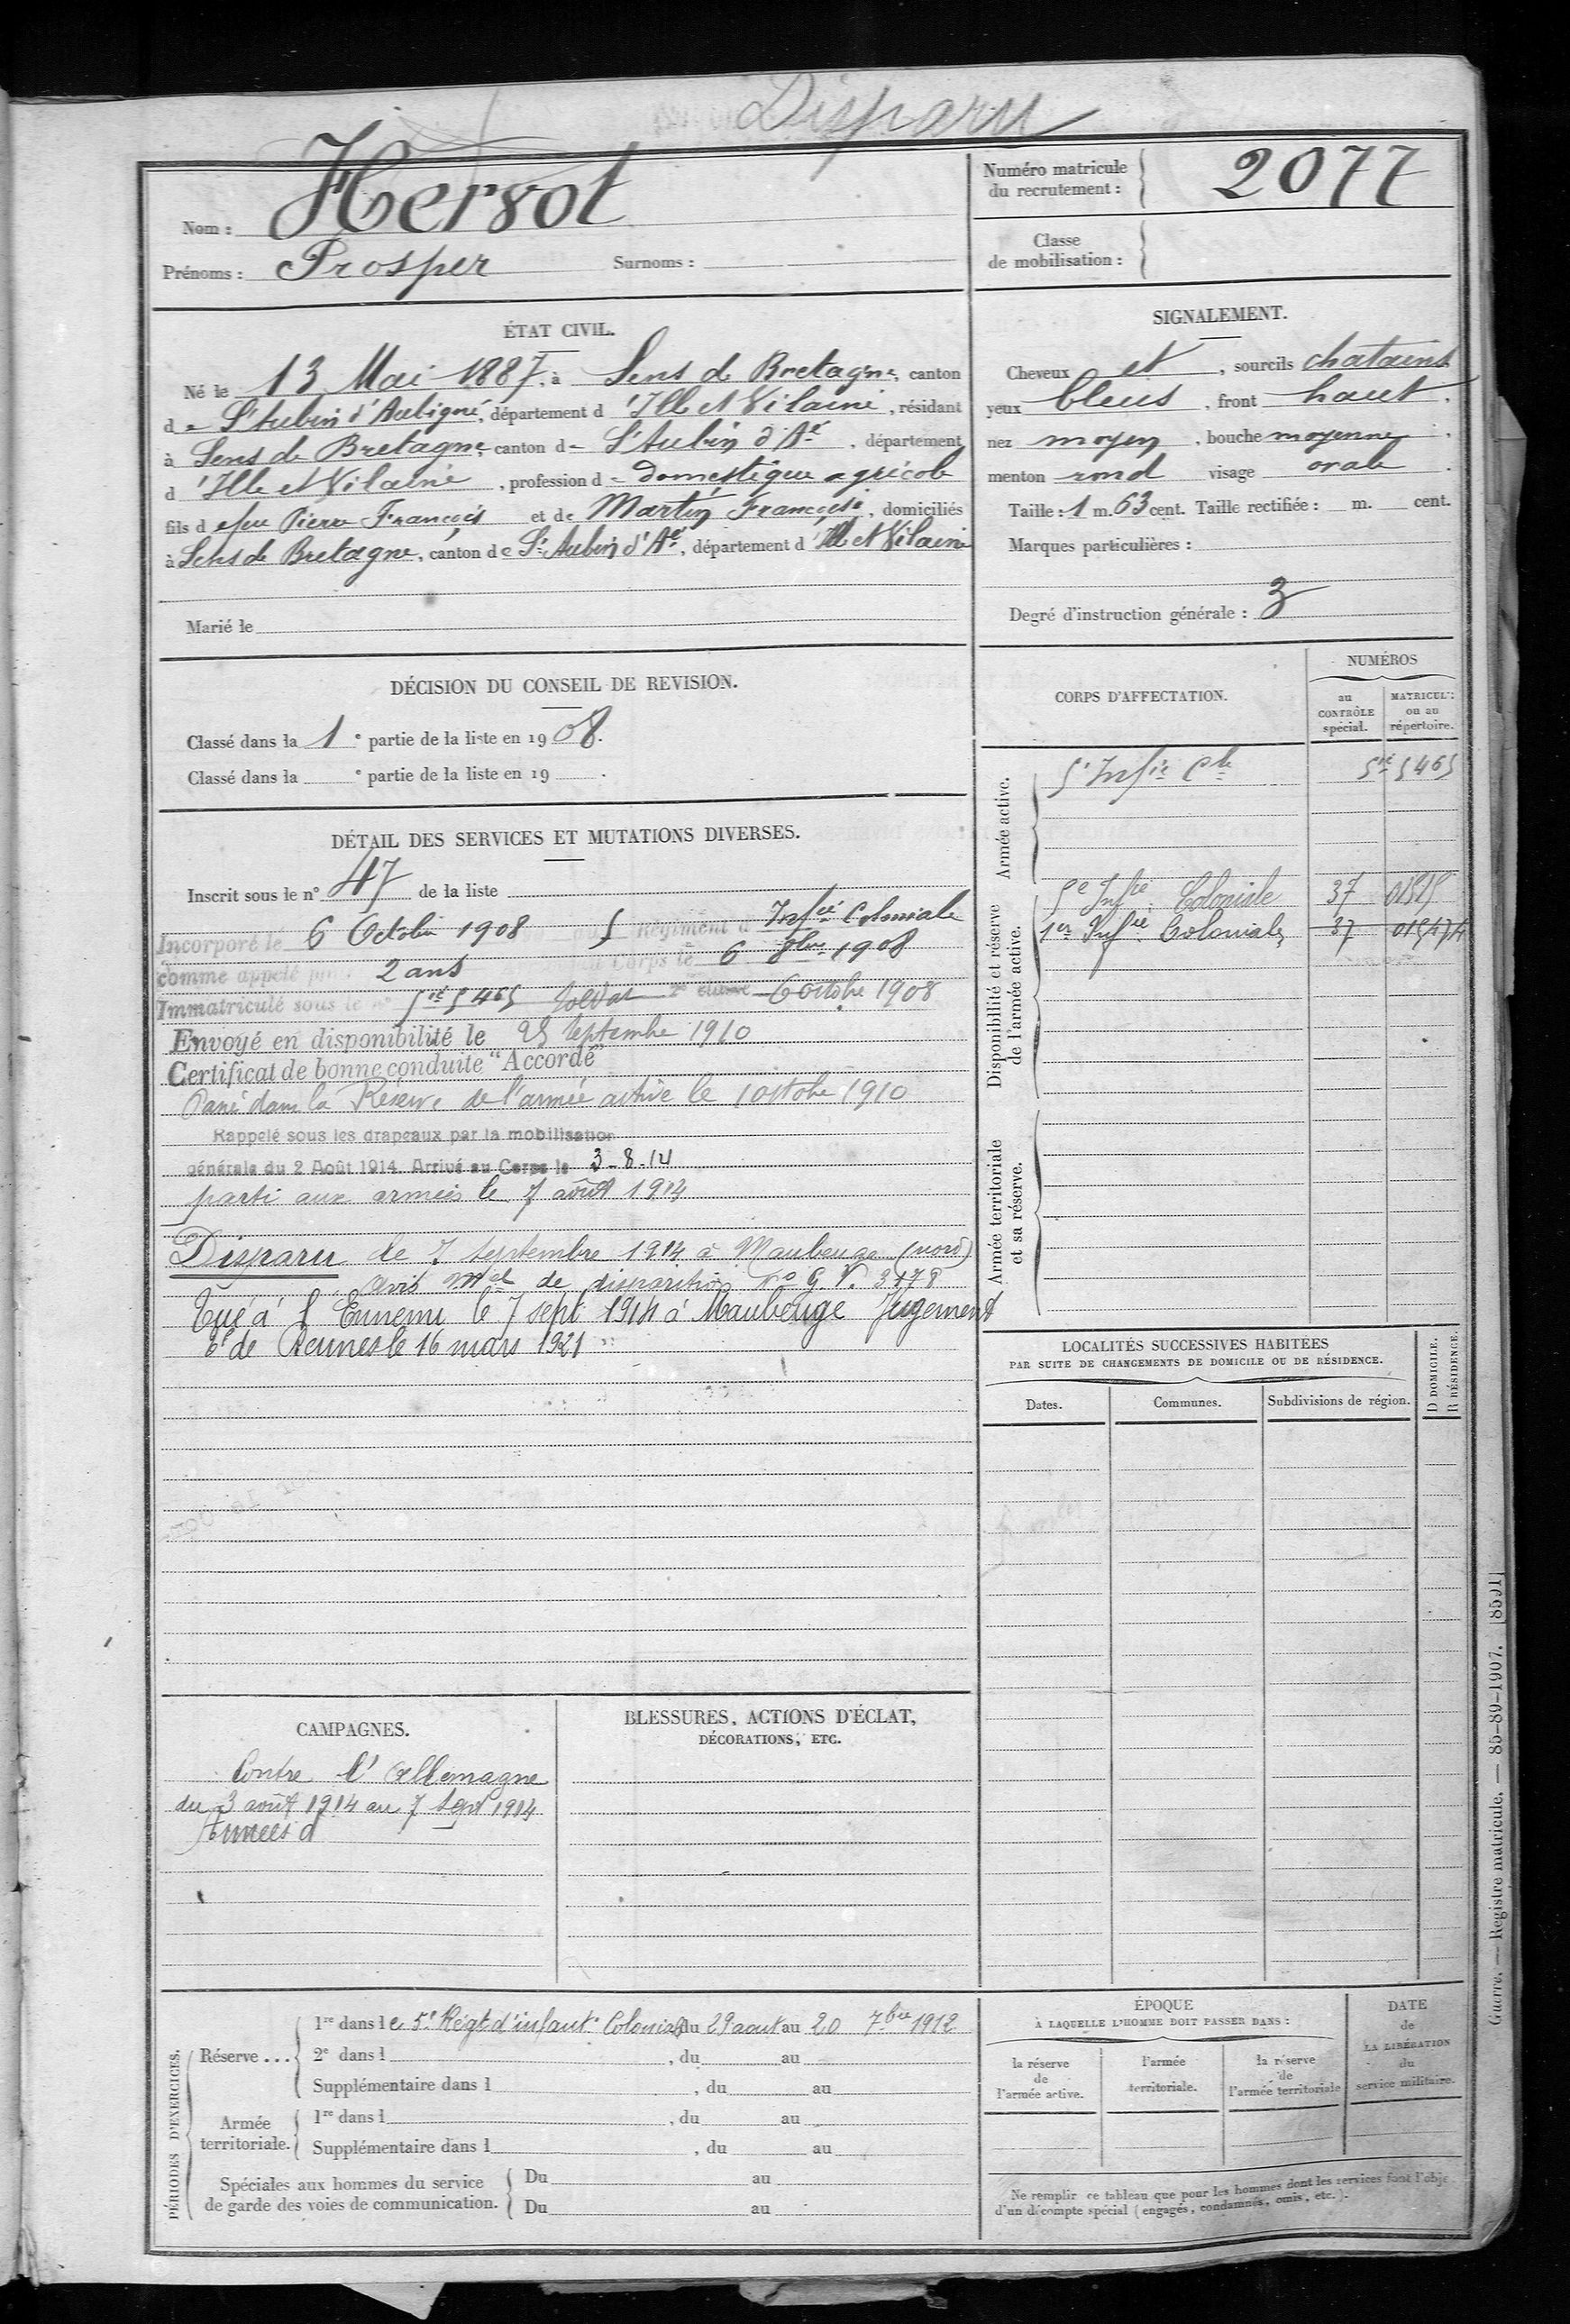 Disparu
Nom : Hersot
Prénoms : Prosper Surnoms :
Numéro matricule
du recrutement :
2077
Classe
de mobilisation :
ÉTAT CIVIL.
Né le 13 Mai 1887, à Sens de Bretagne, canton
de St Aubin d'Aubigné, département d'Ille et Vilaine, résidant
à Sens de Bretagne, canton de St Aubin d'Aé, département
d'Ille et Vilaine, profession de domestique agricole
fils de feu Pierre François et de Martin Françoise, domiciliés
à Sens de Bretagne, canton de St Aubin d'Aé, département d'Ille et Vilaine
Marié le
SIGNALEMENT.
Cheveux et, sourcils chatains
yeux bleus, front haut,
nez moyen, bouche moyenne,
menton rond visage ovale.
Taille : 1 m. 63 cent. Taille rectifiée : m. cent.
Marques particulières :
Degré d'instruction générale : 3
DÉCISION DU CONSEIL DE REVISION.
Classé dans la 1e partie de la liste en 1908.
Classé dans la e partie de la liste en 19 .
DÉTAIL DES SERVICES ET MUTATIONS DIVERSES.
Inscrit sous le n° 47 de la liste
Incorporé le 6 Octobre 1908 au 5 Régiment d'Infie Coloniale
comme appelé pour 2 ans au Corps le 6 8bre 1908
Immatriculé sous le n° 5465 soldat 2e classe 6 octobre 1908
Envoyé en disponibilité le 25 septembre 1910
Certificat de bonne conduite "Accordé"
Passé dans la Réserve de l'armée active le 1 octobre 1910
Rappelé sous les drapeaux par la mobilisation
générale du 2 Août 1914. Arrivé au Corps le 3-8-14
parti aux armées le 7 août 1914
Disparu le 7 septembre 1914 à Maubeuge (nord)
avis Mel de disparition No G.V. 3178
Tué à l'Ennemi le 7 sept 1914 à Maubeuge Jugement
tel de Rennes le 16 mars 1921
CORPS D'AFFECTATION.
NUMÉROS
au
CONTRÔLE
spécial.
MATRICULE
ou au
répertoire.
Armée active.
5e Infie Cle 5465
Disponibilité et réserve
de l'armée active.
5e Infie Coloniale 37 01515
1er Infie Coloniale 37
Armée territoriale
et sa réserve.
LOCALITÉS SUCCESSIVES HABITÉES
PAR SUITE DE CHANGEMENTS DE DOMICILE OU DE RÉSIDENCE.
Dates.
Communes.
Subdivisions de région.
D DOMICILE.
R RÉSIDENCE.
CAMPAGNES.
Contre l'Allemagne
du 3 août 1914 au 7 Sept 1914
Armées d
BLESSURES, ACTIONS D'ÉCLAT,
DÉCORATIONS, ETC.
PÉRIODES D'EXERCICES.
Réserve ...
1re dans le 5e Régt d'infant. Coloniale du 29 aout au 20 7bre 1912
2e dans l , du au
Supplémentaire dans l , du au
Armée
territoriale.
1re dans l , du au
Supplémentaire dans l , du au
Spéciales aux hommes du service
de garde des voies de communication.
Du au
Du au
ÉPOQUE
À LAQUELLE L'HOMME DOIT PASSER DANS :
la réserve
de
l'armée active.
l'armée
territoriale.
la réserve
de
l'armée territoriale
DATE
de
LA LIBÉRATION
du
service militaire.
Ne remplir ce tableau que pour les hommes dont les services font l'obje
d'un décompte spécial (engagés, condamnés, omis, etc.).
Guerre. — Registre matricule. — 85-89-1907. [8591]